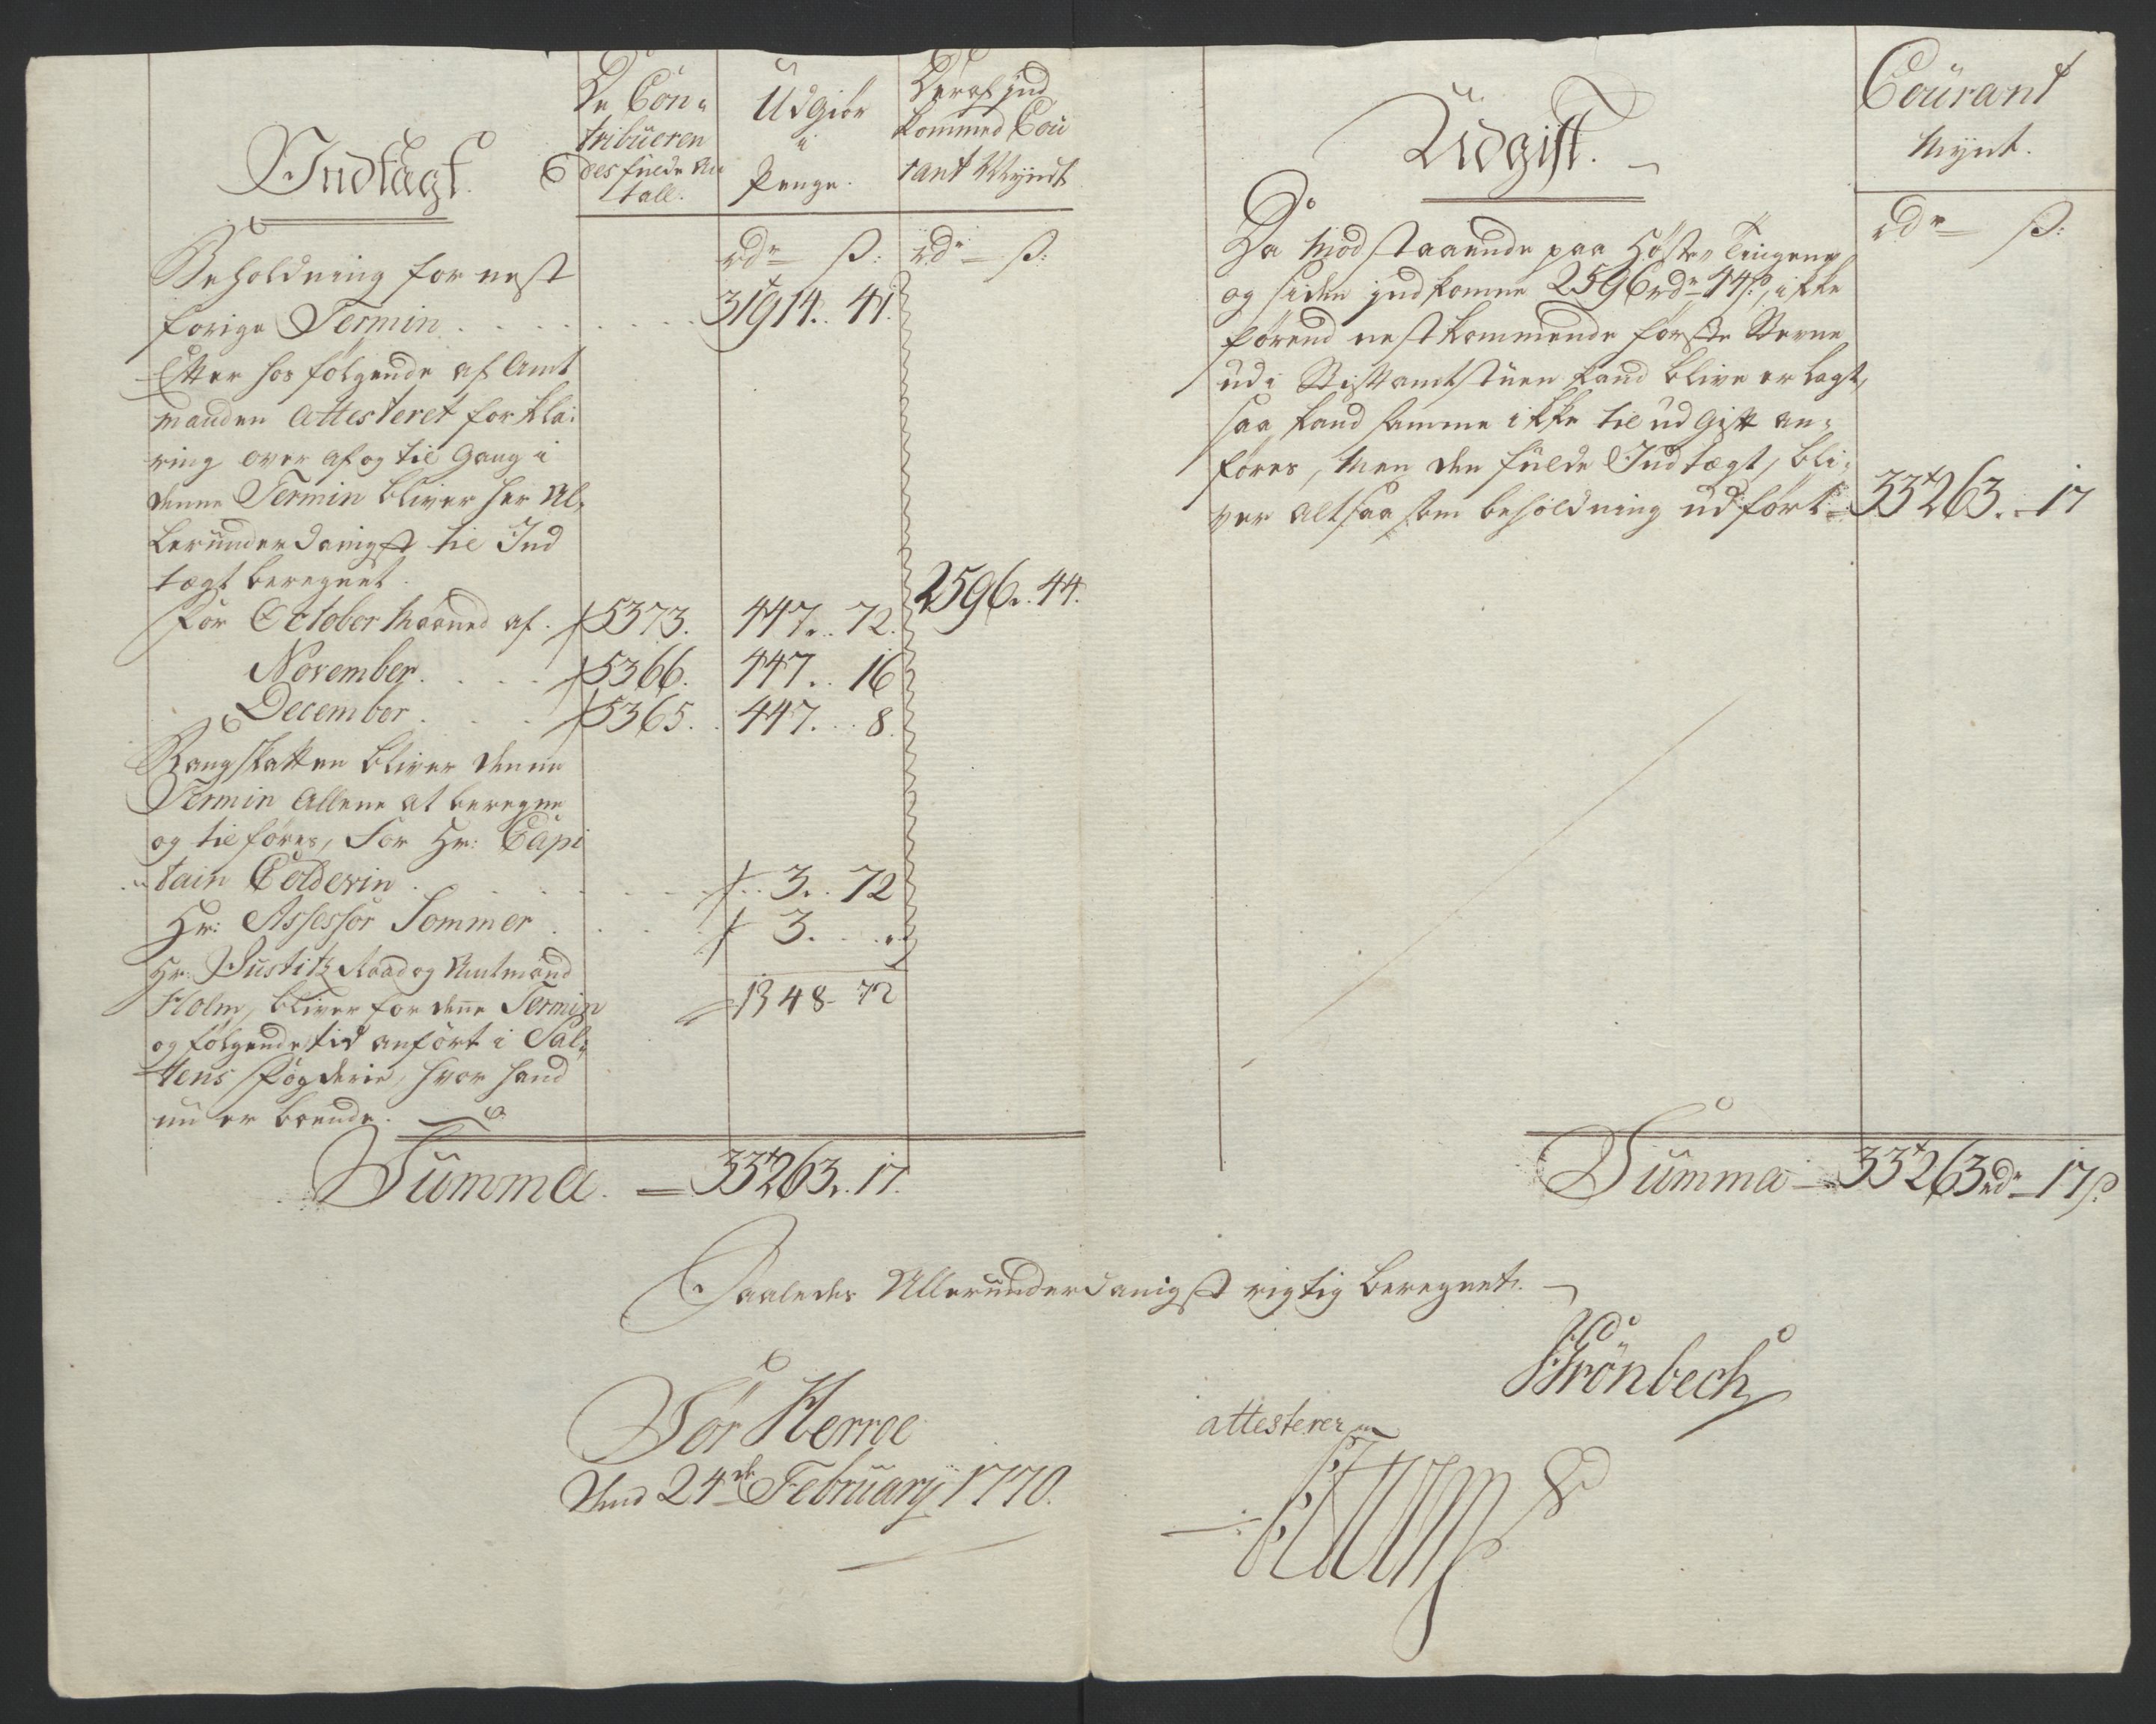 Indtægt.
De Con-
tribueren
des fulde An
tall.
Udgiør
i
Penge.
Heraf ind
kommed Cou
rant Mynt
rdr ß: rdr ß:
Beholdning for nest
forige Termin . . . . . . . . 31914.. 41.
Efter hos følgende af Amt
manden Attesteret forkla-
ring over af og til Gang i
denne Termin bliver her Al-
lerunderdanigst til Ind
tægt beregnet. 2596.. 44.
For October Maaned af. 5373. 447.. 72.
November. . . . 5366. 447.. 16
December . . . 5365. 447... 8.
Rangskatten bliver denne
Termin Allene at beregne
og tilføres, for Hr: Capi
tain Colderin . . . . . . . 3.. 72
Hr: Assessor Sommer . . . . 3. . ..
Hr: Justitz Raad og Amtmand
Holm, bliver for dene Termin 1348- 72
og følgende tid anført i Sal-
tens Fogderie, hvor hand
nu er boende.
Summa. = 33263.. 17.
Udgift.
Courant
Mynt.
rdr ß:
Da Modstaaende paa Høste Tingene
og siden indkomne 2596 rdr 44 ß, ikke
førend nestkommende første Sterne
ud i Stiftamtstuen kand blive erlagt,
saa kand samme ikke til udgift an-
føres, Men den fulde Indtægt, bli-
ver altsaa som beholdning udført = 33263. - 17
Summa - 33263 rdr - 17 ß
Saaledes Allerunderdanigst rigtig beregnet.
Sør Herroe
Dend 24de February 1770.
Grönbech
attesterer
Holm